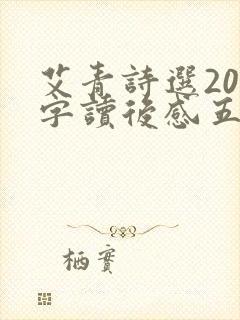 艾青詩選20
字讀後感五
栖實